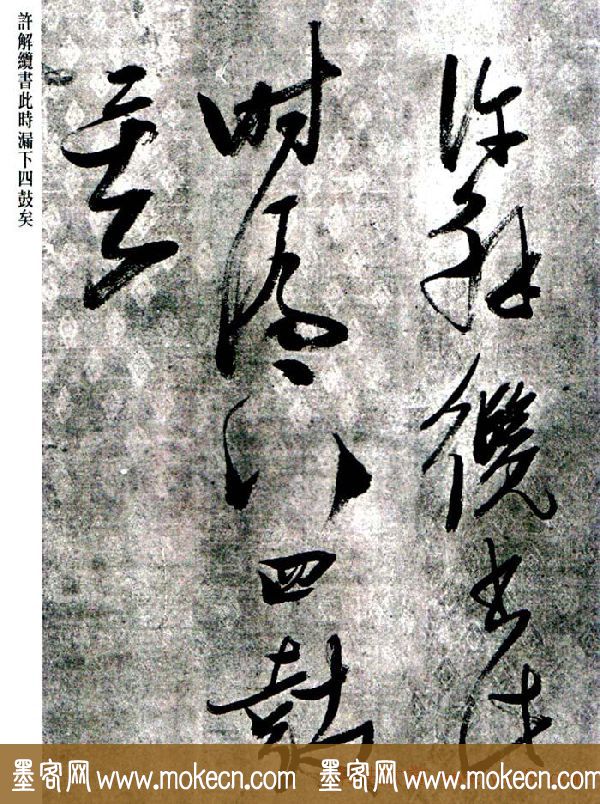 許解纜書此時漏下四鼓矣
許解纜書此
時漏下四鼓
矣
墨客网 www.mokecn.com 墨客网 www.mokecn.com